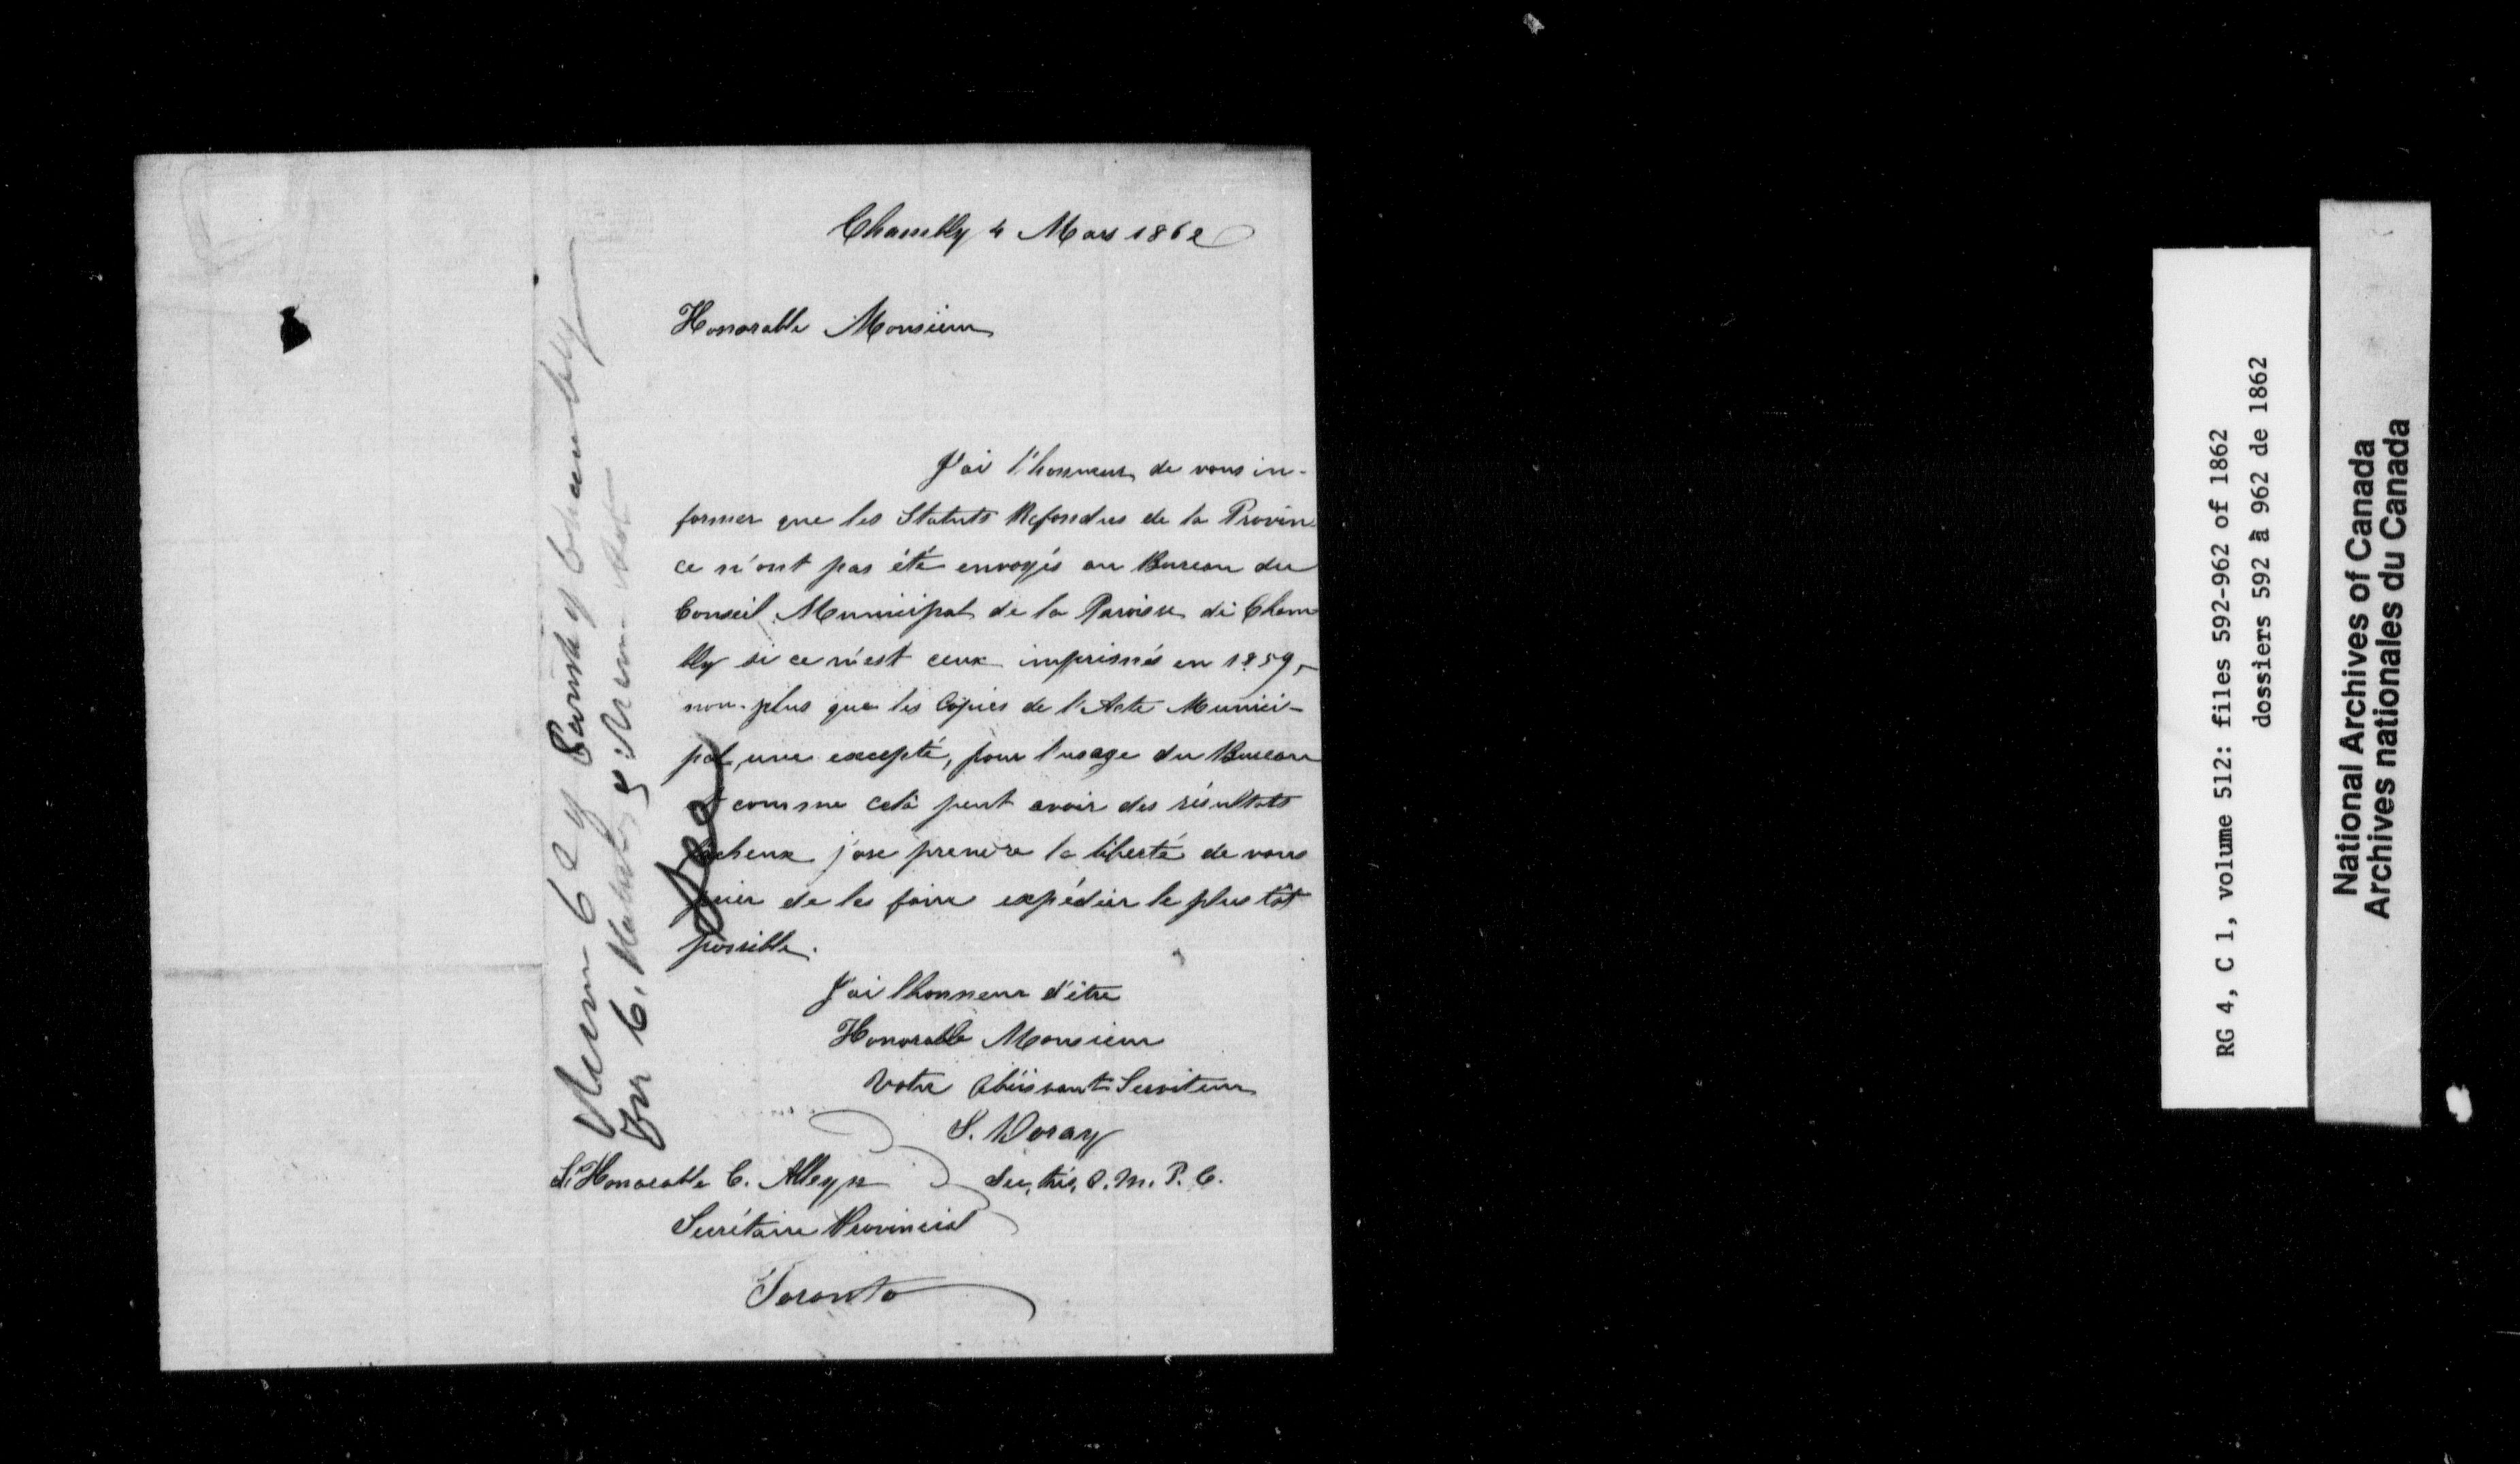 Chambly 4 Mars 1862
Honorable Monsieur
J'ai l'honneur de vous in-
former que les Statuts Refondus de la Provin
ce n'ont pas été envoyés au Bureau du
Conseil Municipal de la Paroisse de Cham
bly si ce n'est ceux imprimés en 1859,
non-plus que les Copies de l'Acte Munici-
pal, une excepté, pour l'usage du Bureau
et comme celà peut avoir des résultats
facheux j'ose prendre la liberté de vous
prier de les faire expédier le plus tôt
possible.
J'ai l'honneur d'être
Honorable Monsieur
Votre Obéissant Serviteur
S. Doray
Sec, trés, C. M. P. C.
L'Honorable C. Alleyn
Secrétaire Provincial
Toronto
Parish of Chambly
For C.
RG 4, C 1, volume 512: files 592-962 of 1862
dossiers 592 à 962 de 1862
National Archives of Canada
Archives nationales du Canada